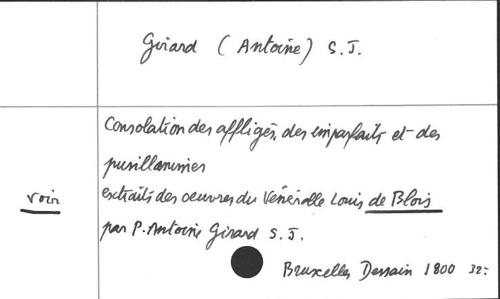 Girard (Antoine) S.J.
Consolation des affligés, des imparfaits et des
pusillanimes
voir extraits des oeuvres du Vénérable Louis de Blois
par P. Antoine Girard S.J.
Bruxelles Dessain 1800 32: